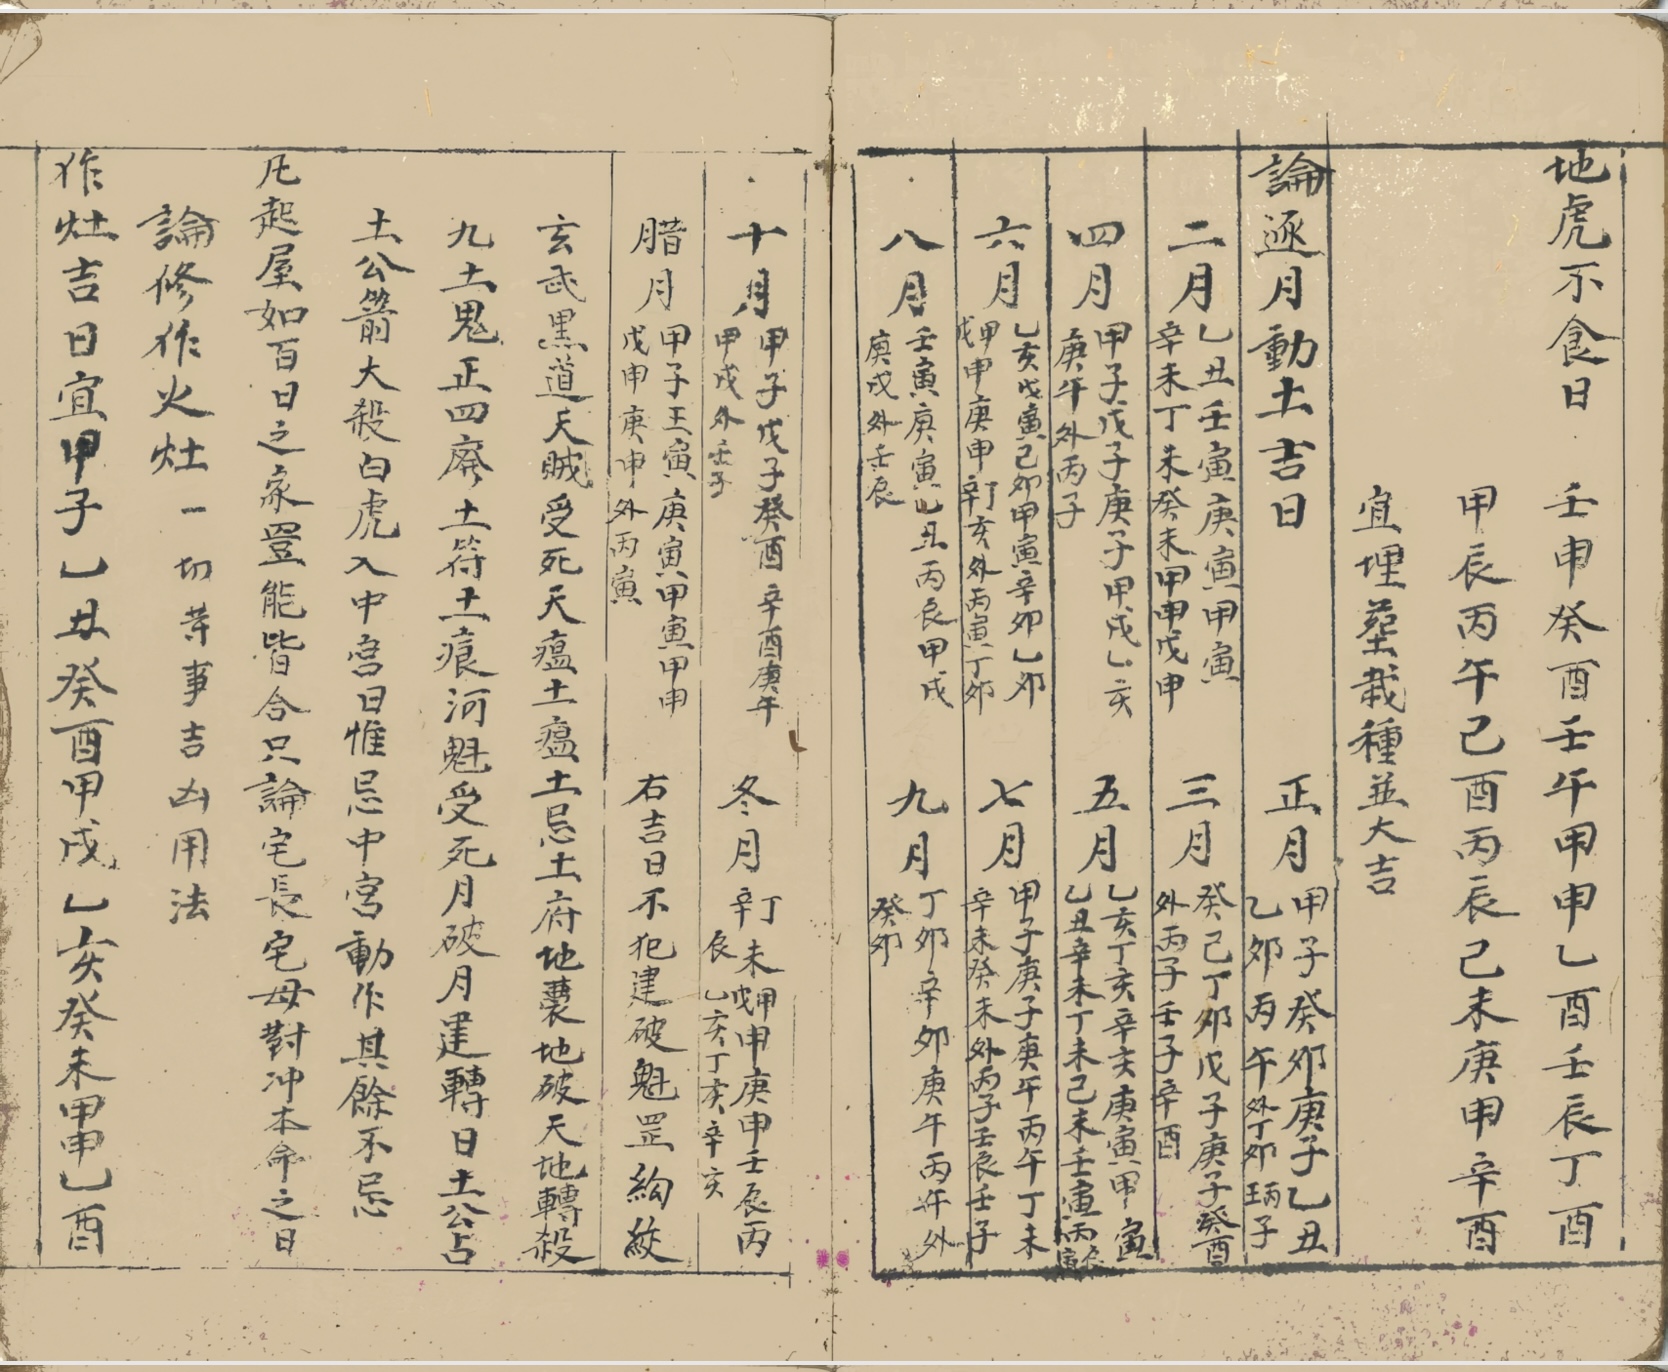 地虎不食日 壬申癸酉壬午甲申乙酉壬辰丁酉
甲辰丙午己酉丙辰己未庚申辛酉
宜埋葬栽種並大吉
論逐月動土吉日
正月 甲子癸卯庚子乙丑
乙卯丙午外丁卯壬丙子
二月 乙丑壬寅庚寅甲寅
辛未丁未癸未甲申戊申
三月 癸己丁卯戊子庚子癸酉
外丙子壬子辛酉
四月 甲子戊子庚子甲戌乙亥
庚午外丙子
五月 乙亥丁亥辛亥庚寅甲寅
乙丑辛未丁未己未壬寅丙辰寅
六月 乙亥戊寅己卯甲寅辛卯乙卯
戊甲申庚申辛丁亥外丙寅丁卯
七月 甲子庚子庚午丙午丁未
辛未癸未外丙子壬辰壬子
八月 壬寅庚寅乙丑丙辰甲戌
庚戌外壬辰
九月 丁卯辛卯庚午丙午外
癸卯
十月 甲子戊子癸酉辛酉庚午
甲戌外壬子
冬月 丁未甲申庚申壬辰丙
辛戊辰乙亥丁亥辛亥
腊月 甲子壬寅庚寅甲寅甲申
戊申庚申外丙寅
右吉日不犯建破魁罡紃絞
玄武黑道天賊受死天瘟土瘟土忌土府地囊地破天地轉殺
九土鬼正四廢土符土痕河魁受死月破月建轉日土公占
土公箭大殺白虎入中宮日惟忌中宮動作其餘不忌
凡起屋如百日之家豈能皆合只論宅長宅母對冲本命之日
論修作火灶一切等事吉凶用法
作灶吉日宜甲子乙丑癸酉甲戌乙亥癸未甲申乙酉